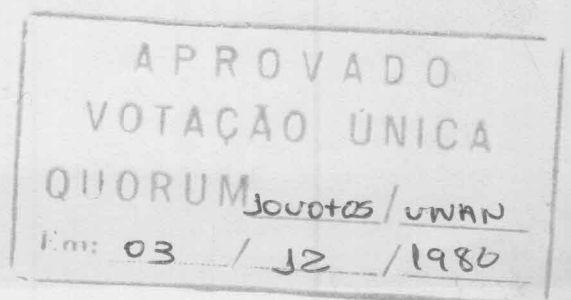 APROVADO
VOTAÇÃO ÚNICA
QUORUM 10 votos / UNAN
Em: 03 / 12 / 1986